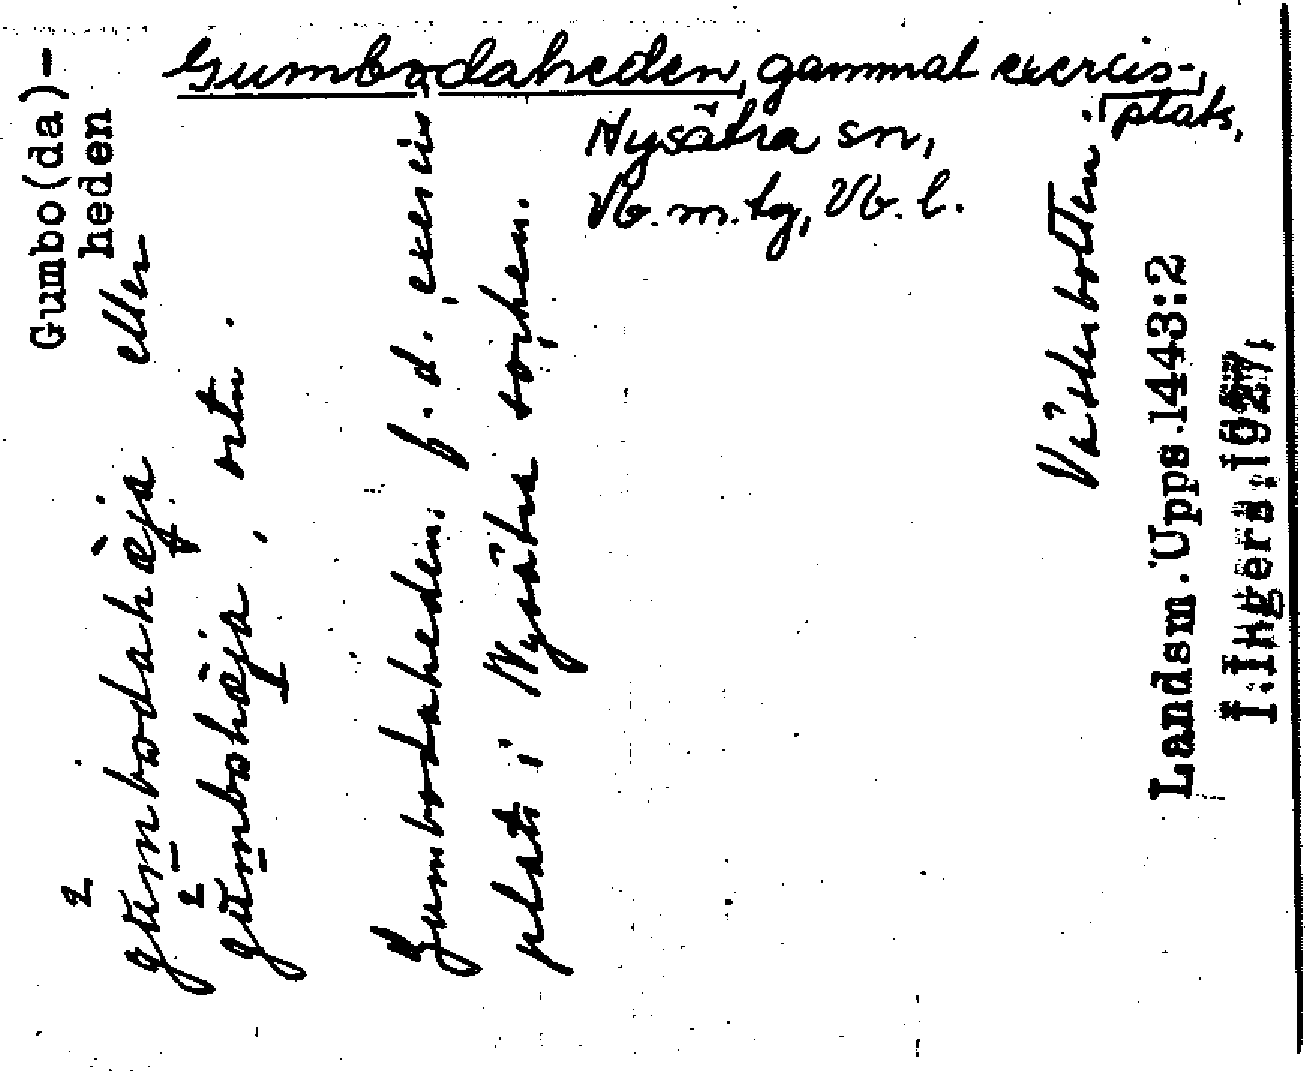 Gumbodaheden, gammal exercis-
plats,
Nysätra sn,
Vb.m.tg, Vb.l.
Gumbo(da)-
heden
gumbodahæja eller
gumbohæja, ortn.
Gumbodaheden, f.d. exercis
plats i Nysätra socken.
Västerbotten.
Landsm.Upps.1443:2
I.Ingers.1927,